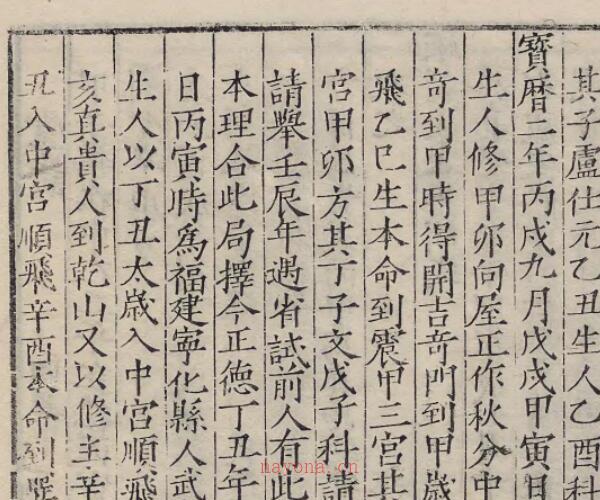 其子盧仕元乙丑生人乙酉科
寶曆二年丙戌九月戊戌甲寅日
生人修甲卯向屋正作秋分中
奇到甲時得開吉奇門到甲歲
飛乙巳生本命到震甲三宮其
宮甲卯方其丁子文戊子科請
請舉壬辰年遇省試前人有此
本理合此局擇今正德丁丑年
日丙寅時爲福建寧化縣人武
生人以丁丑太歲入中宮順飛
亥真貴人到乾山又以修主辛
丑入中宮順飛辛酉本命到巽
nayona.cn